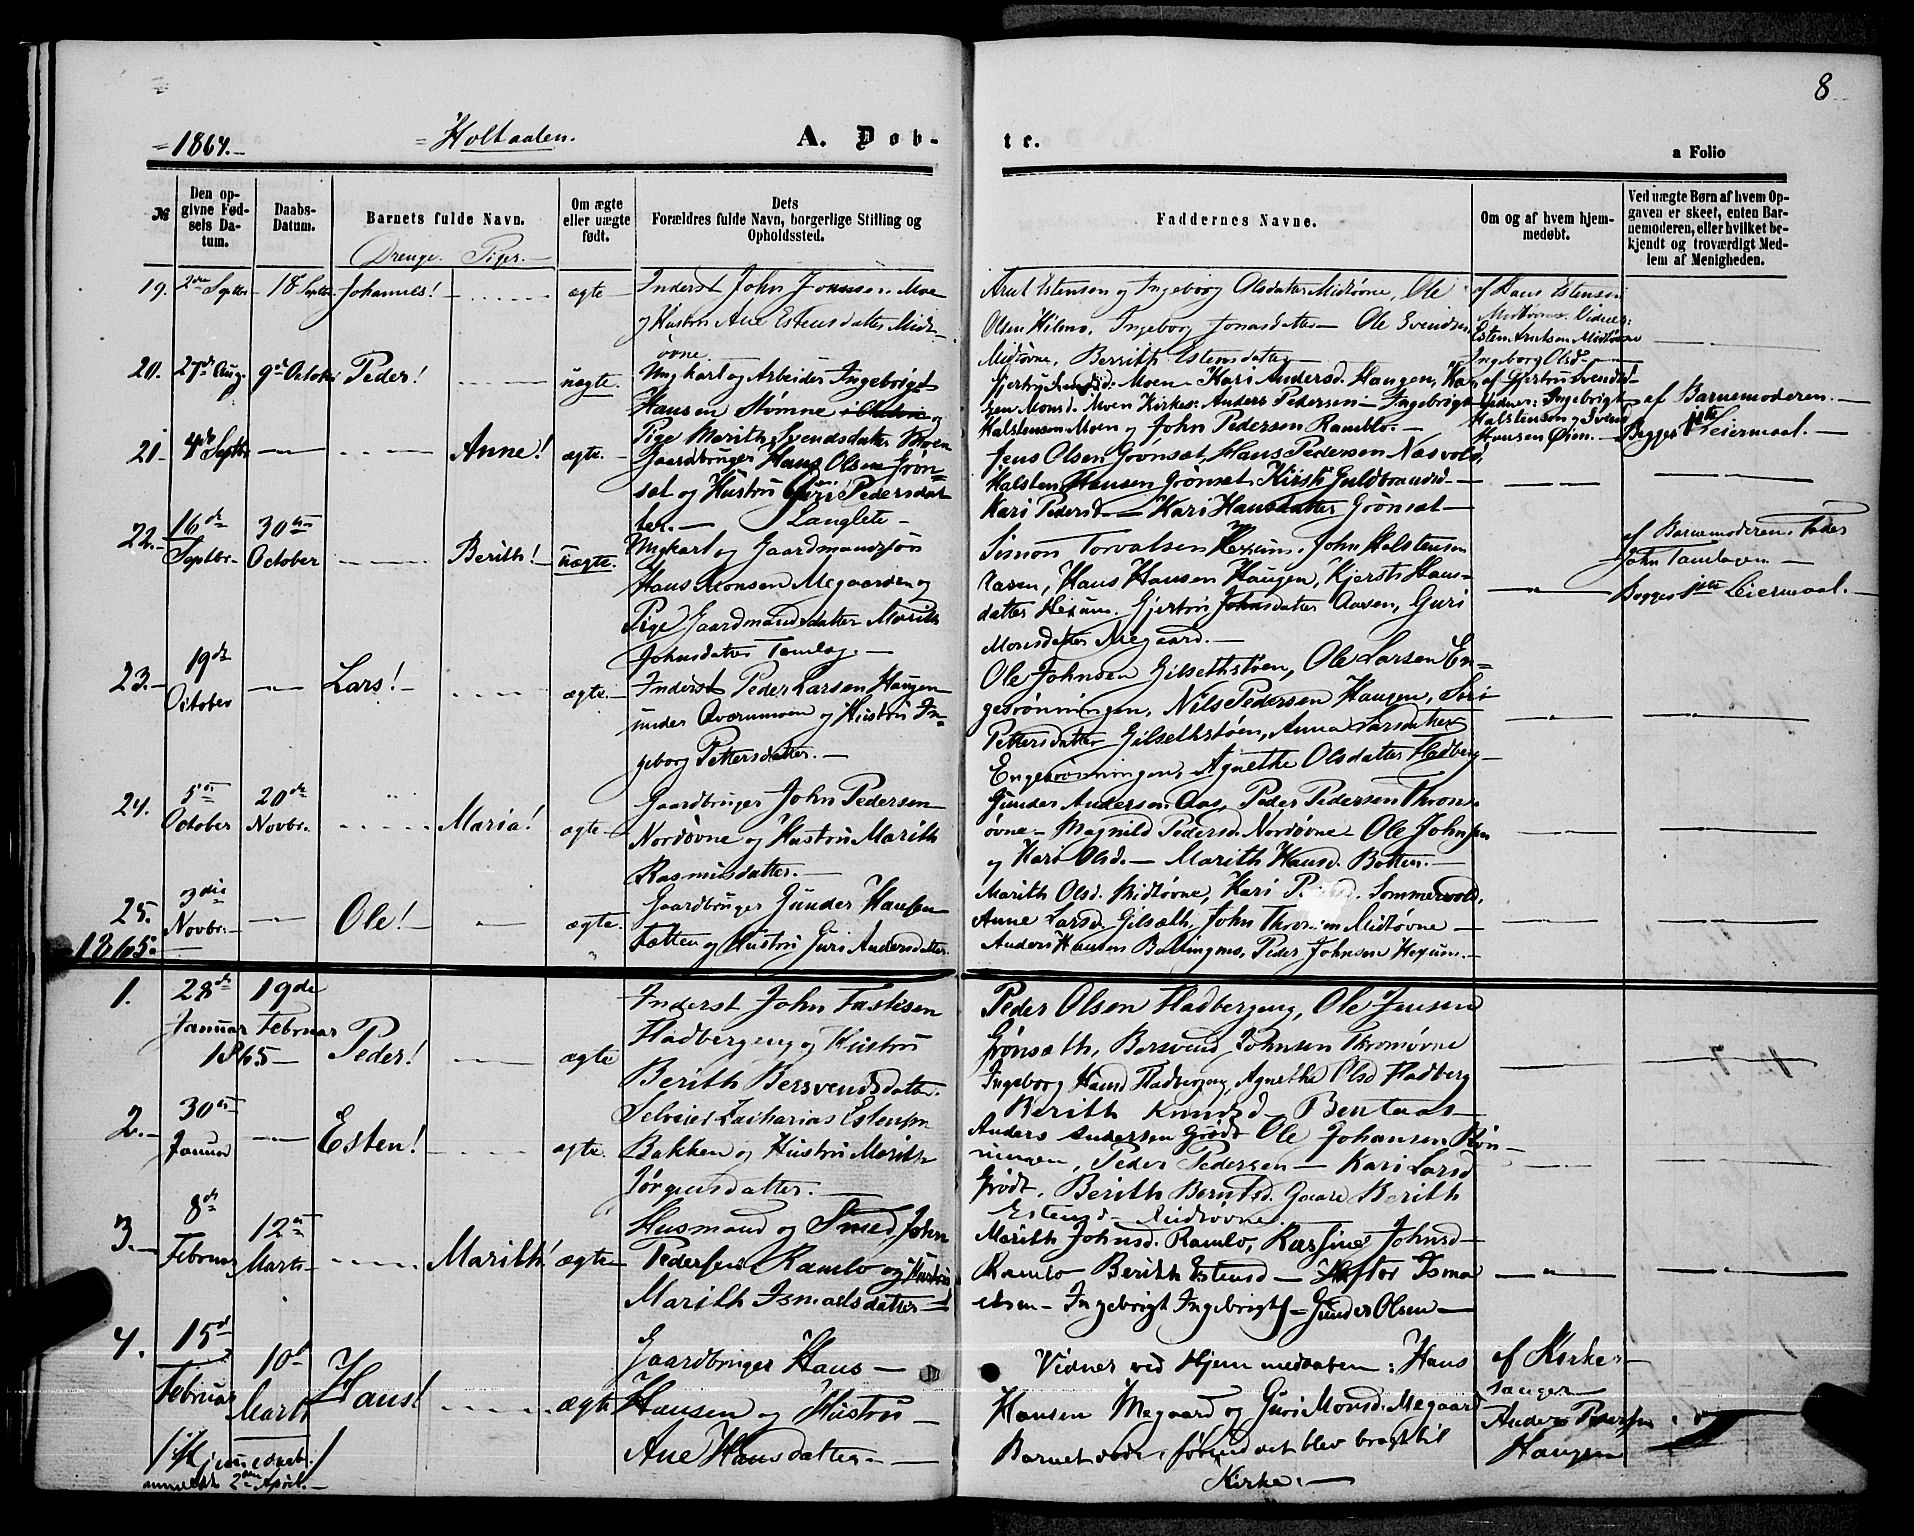 8
1864.
Holtaalen.
A. Døb-
te.
a Folio
№
Den op-
givne Fød-
sels Da-
tum.
Daabs-
Datum.
Barnets fulde Navn.
Drenge. Piger.
Om ægte
eller uægte
født.
Dets
Forældres fulde Navn, borgerlige Stilling og
Opholdssted.
Faddernes Navne.
Om og af hvem hjem-
medøbt.
Ved uægte Børn af hvem Op-
gaven er skeet, enten Bar-
nemoderen, eller hvilket be-
kjendt og troværdigt Med-
lem af Menigheden.
19. 2den Septbr. 18 Septbr. Johannes! ægte
Inderst John Jonsen Moe
og Hustru Ane Estensdatter Midt-
øvne.
Arnt Estensen og Ingeborg Olsdatter Midtøvne, Ole
Olsen Hilmo, Ingeborg Jonasdatter Ole Svendsen
Midtøvne, Berrith Estensdatter
af Hans Estensen
Midtøvne. Vidner:
Esten Arntsen Midtøvne
Ingeborg Olsd.
20. 27de Aug. 9de October Peder! uægte.
Ungkarl og Arbeider Ingebrigt
Hansen Stømne og
Pige Marith Svendsdatter Moen
Moen Kari Andersd. Haugen, Kari
Monsd. Moen Kirkes: Anders Pedersen Ingebrigt
Halstensen Moen og John Pedersen Ramlo.
af Gjertru Svendsd.
Vidner: Ingebrigt
Halstensen og Svend
Hansen Øien.
af Barnemoderen.
Begges 1ste Leiermaal.
21. 4de Septbr. Anne! ægte.
Gaardbruger Hans Olsen Grøn-
sæt og Hustru Guri Pedersdat-
ter. Langlete
Jens Olsen Grønsæt, Hans Pedersen Næsvold,
Halsten Hansen Grønsæt Kirsti Guldbrandsd.
Kari Pedersd. Kari Hansdatter Grønsæt
22. 16de Septbr. 30te October Berith! uægte.
Ungkarl og Gaardmandssøn
Hans Monsen Megaarden og
Pige Gaardmandsdatter Marith
Johnsdatter Tamlag.
Simon Torvaldsen Hexum, John Halstensen
Aasen, Hans Hansen Haugen, Kjersti Hans-
datter Hexum. Gjertru Johnsdatter Aasen, Guri
Monsdatter Megaard.
af Barnemoderens Fader
John Tamlagen
Begges 1ste Leiermaal.
23. 19de October Lars! ægte.
Inderst Peder Larsen Haugen
under Qværnmoen og Hustru In-
geborg Pettersdatter.
Ole Johnsen Gilsethstøen, Ole Larsen En-
gesrønningen, Nils Pedersen Haugen, Siri
Pettersdatter Gilsethstøen, Anna Larsdatter
Engesrønningen, Agnethe Olsdatter Fladberg
24. 5te October 20de Novbr. Maria! ægte
Gaardbruger John Pedersen
Nordøvne og Hustru Marith
Rasmusdatter.
Gunder Andersen Aas, Peder Pedersen Thron-
øvne Magnild Pedersd. Nordøvne Ole Johnsen
og Kari Olsd. Marith Hansd. Botten.
25. 3die Novbr. Ole! ægte.
Gaardbruger Gunder Hansen
Tætten og Hustru Guri Andersdatter
Marith Olsd. Midtøvne, Kari Sommervold,
Anne Larsd. Gilsæth, John Thronsen Midtøvne
Anders Hansen Ballingmo, Peder Johnsen Hexum.
1865.
1. 28de Januar 1865 19de Februar Peder! ægte
Inderst John Fastesen
Fladbergeng og Hustru
Berith Bersvendsdatter.
Peder Olsen Fladbergeng, Ole Jensen
Grønsæth, Bersvend Johnsen Thronøvne
Ingeborg Hansd Fladbergeng, Agnethe Olsd Fladberg
Berith Knudsd. Bentaas
2. 30te Januar Esten! ægte.
Selveier Zacharias Estensen
Bakken og Hustru Marith
Jørgensdatter.
Anders Andersen Grødt Ole Johansen Røn-
ningen, Peder Pedersen Kari Larsd
Grødt, Berith Berntsd. Gaare Berith
Estensd. Midtøvne.
3. 8de Februar 12te Marts Marith! ægte
Husmand og Smed John
Pedersen Ramlo og Hustru
Marith Ismaelsdatter
Marith Johnsd. Ramlo, Karsine Johnsd
Ramlo Berith Estensd. Hæftor Isma
elsen Ingebrigt Ingebrigts. Gunder Olsen
4. 15de Februar 10de Marts Hans! ægte
Gaardbruger Hans
Hansen og Hustru
Ane Hansdatter.
Vidner ved Hjemmedaaben: Hans
Hansen Megaard og Guri Monsd. Megaard
Barnet døde, førend det blev bragt til
Kirke.
af Kirke-
sanger
Anders Pedersen
Haugen
Hjemmedøbt.
anmeldt 2den April.